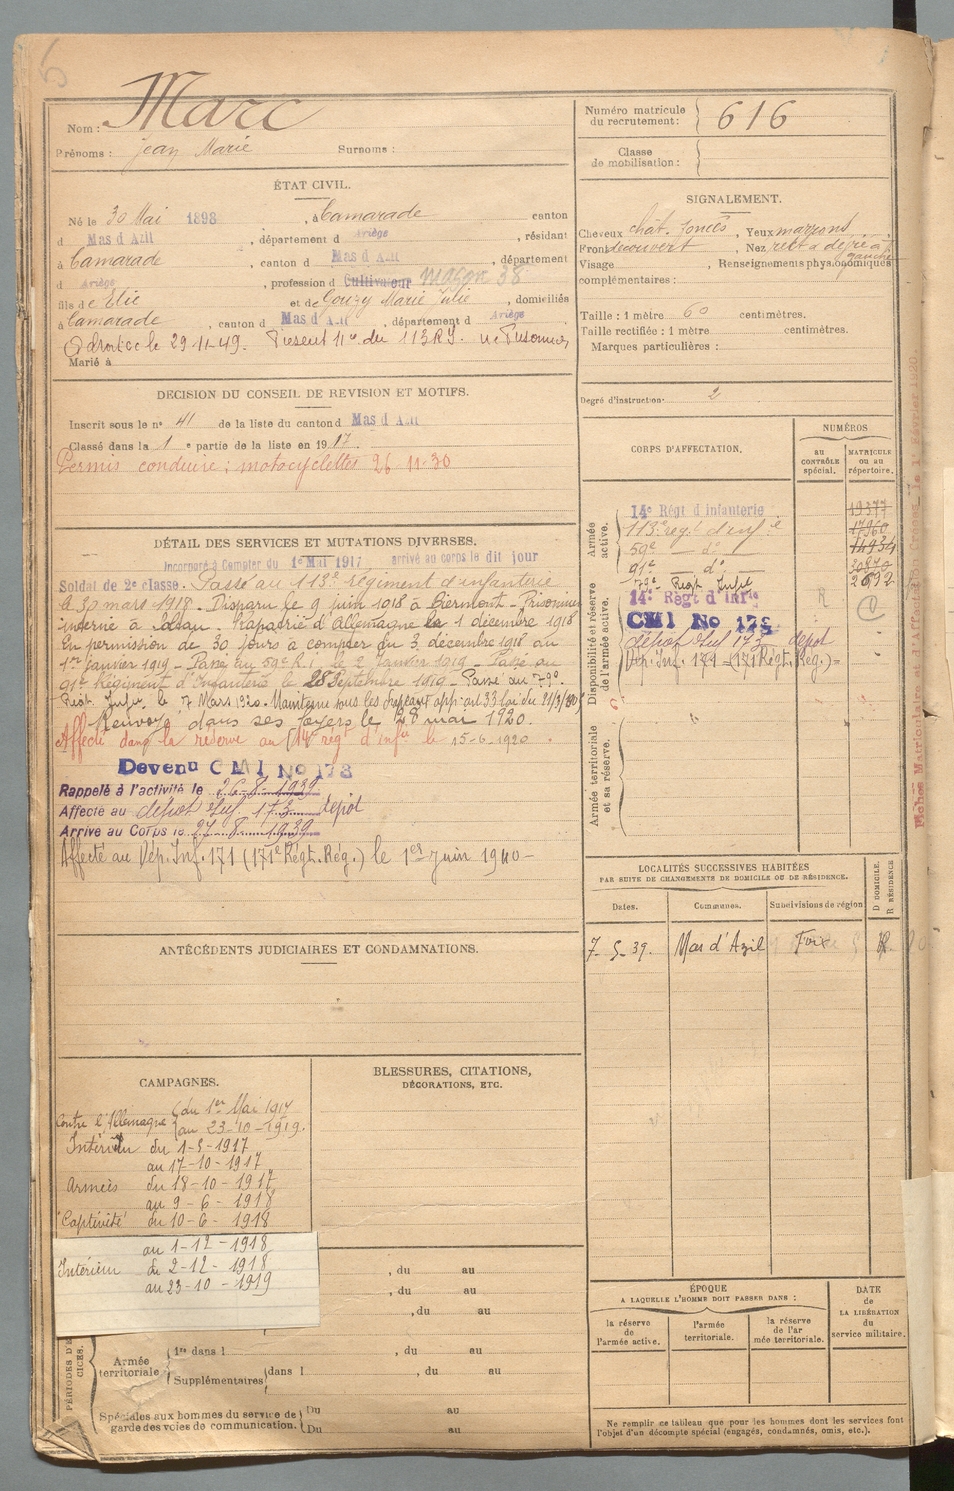 Nom : Marc
Prénoms : Jean Marie Surnoms :
Numéro matricule du recrutement : 616
Classe de mobilisation :
ÉTAT CIVIL.
Né le 30 Mai 1898, à Camarade canton
d Mas d Azil, département d Ariège, résidant
à Camarade, canton d Mas d Azil département
d Ariège, profession d Cultivateur maçon 38
fils de Elie et de Gouzy Marie Julie, domiciliés
à Camarade, canton d Mas d Azil, département d Ariège
le 29-11-49. 113 RI.
Marié à
SIGNALEMENT.
Cheveux chât. foncés, Yeux marrons
Front découvert, Nez rect. dévié à gauche
Visage, Renseignements physionomiques
complémentaires :
Taille : 1 mètre 60 centimètres.
Taille rectifiée : 1 mètre centimètres.
Marques particulières :
Degré d'instruction 2
DÉCISION DU CONSEIL DE REVISION ET MOTIFS.
Inscrit sous le n° 41 de la liste du canton d Mas d Azil
Classé dans la 1 e partie de la liste en 1917.
Permis conduire : motocyclettes 26-11-30
CORPS D'AFFECTATION.
NUMÉROS
au CONTRÔLE spécial.
MATRICULE ou au répertoire.
Armée active.
14e Régt d'infanterie 19377
113e regt d'infie 17960
59e — do — 14934
91e — do — 30870
79e Regt Infie 2692
Disponibilité et réserve de l'armée active.
14e Régt d'Infie R
CMI No 173
dépôt Inf 173 dépôt
Dép. Inf. 171 (171 Régt. Rég.)=
Armée territoriale et sa réserve.
DÉTAIL DES SERVICES ET MUTATIONS DIVERSES.
Incorporé à Compter du 1e Mai 1917 arrivé au corps le dit jour
Soldat de 2e classe. Passé au 113e régiment d'infanterie
le 30 mars 1918. Disparu le 9 juin 1918 à Biermont. Prisonnier
interné à. Rapatrié d'Allemagne le 1 décembre 1918
En permission de 30 jours à compter du 3 décembre 1918 au
1er janvier 1919 - Passé au 59e R.I. le 2 Janvier 1919 - Passé au
91e Régiment d'Infanterie le 28 Septembre 1919 - Passé au 79e
Régt. Infie le 7 Mars 1920. Maintenu sous les drapeaux app. art 33 loi du
Renvoyé dans ses foyers le 28 mai 1920.
Affecté dans la réserve au 14e regt d'infie le 15-6-1920.
Devenu CMI No 173
Rappelé à l'activité le 26-8-1939
Affecté au dépôt Inf 173 dépôt
Arrivé au Corps le 27-8-1939
Affecté au Dép. Inf. 171 (171e Régt. Rég.) le 1er Juin 1940 -
ANTÉCÉDENTS JUDICIAIRES ET CONDAMNATIONS.
LOCALITÉS SUCCESSIVES HABITÉES
PAR SUITE DE CHANGEMENTS DE DOMICILE OU DE RÉSIDENCE.
Dates. Communes. Subdivisions de région D DOMICILE. R RÉSIDENCE
7-5-39. Mas d'Azil Foix R
CAMPAGNES.
Contre l'Allemagne du 1er Mai 1917
au 23-10-1919.
Intérieur du 1-5-1917
au 17-10-1917
Armées du 18-10-1917
au 9-6-1918
Captivité du 10-6-1918
au 1-12-1918
Intérieur du 2-12-1918
au 23-10-1919
BLESSURES, CITATIONS, DÉCORATIONS, ETC.
, du au
, du au
, du au
PÉRIODES D'EXERCICES.
Armée territoriale
1re dans l , du au
Supplémentaires dans l , du au
Spéciales aux hommes du service de garde des voies de communication.
Du au
Du au
ÉPOQUE
A LAQUELLE L'HOMME DOIT PASSER DANS :
la réserve de l'armée active.
l'armée territoriale.
la réserve de l'armée territoriale.
DATE de LA LIBÉRATION du service militaire.
Ne remplir ce tableau que pour les hommes dont les services font
l'objet d'un décompte spécial (engagés, condamnés, omis, etc.).